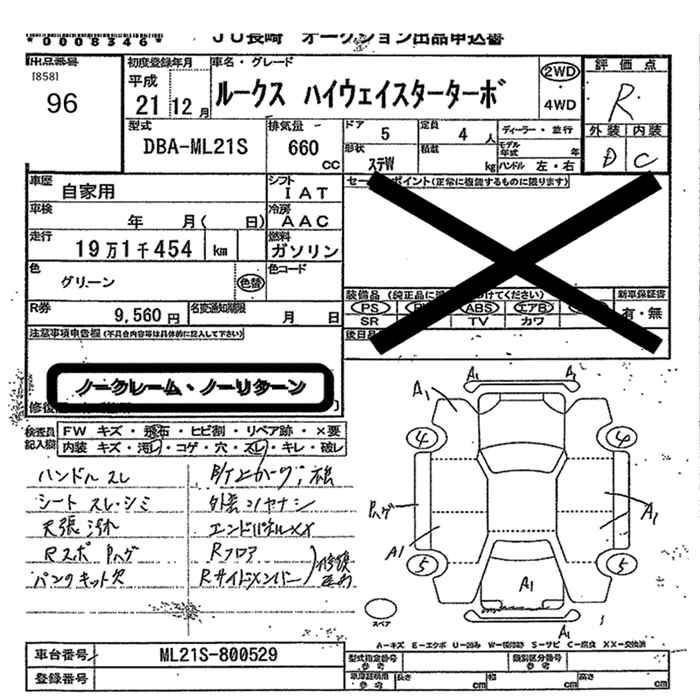 *0008346* JU長崎 オークション出品申込書
出品番号 [858] 96
初度登録年月 平成 21年 12月
車名・グレード ルークス ハイウェイスターターボ
2WD ・ 4WD
評価点 R
外装 内装
D C
型式 DBA-ML21S
排気量 660 CC
ドア 5 定員 4 人
形状 ステW 積載 kg
ディーラー・並行
モデル年式 年
ハンドル 左・右
車歴 自家用
シフト IAT
車検 年 月( 日)
冷房 AAC
走行 19万1千454 km
燃料 ガソリン
色 グリーン 色替
色コード
R券 9,560円
名変通知期限 月 日
セー ポイント(正常に機能するものに限ります)
装備品 (純正品に けてください)
PS ABS エアB
SR TV カワ
新車保証書 有・無
後日品
注意事項申告欄(不具合内容等は具体的に記入して下さい)
ノークレーム・ノーリターン
検査員記入欄
FW キズ・飛石・ヒビ割・リペア跡・×要
内装 キズ・汚レ・コゲ・穴・スレ・キレ・破レ
ハンドルスレ
シート スレ・シミ
天張汚れ
Rスポ Pハゲ
パンクキット欠
外装
エンドパネルXX
Rフロア
Rサイドメンバー
A1 A1
A1
4 4
Pハゲ A1
A1
5 5
A1
A1
スペア
A-キズ E-エクボ U-凹み W-補修跡 S-サビ C-腐食 XX-交換済
車台番号 ML21S-800529
登録番号
型式指定番号 参考 類別区分番号 参考
長さ cm 幅 cm 高さ cm